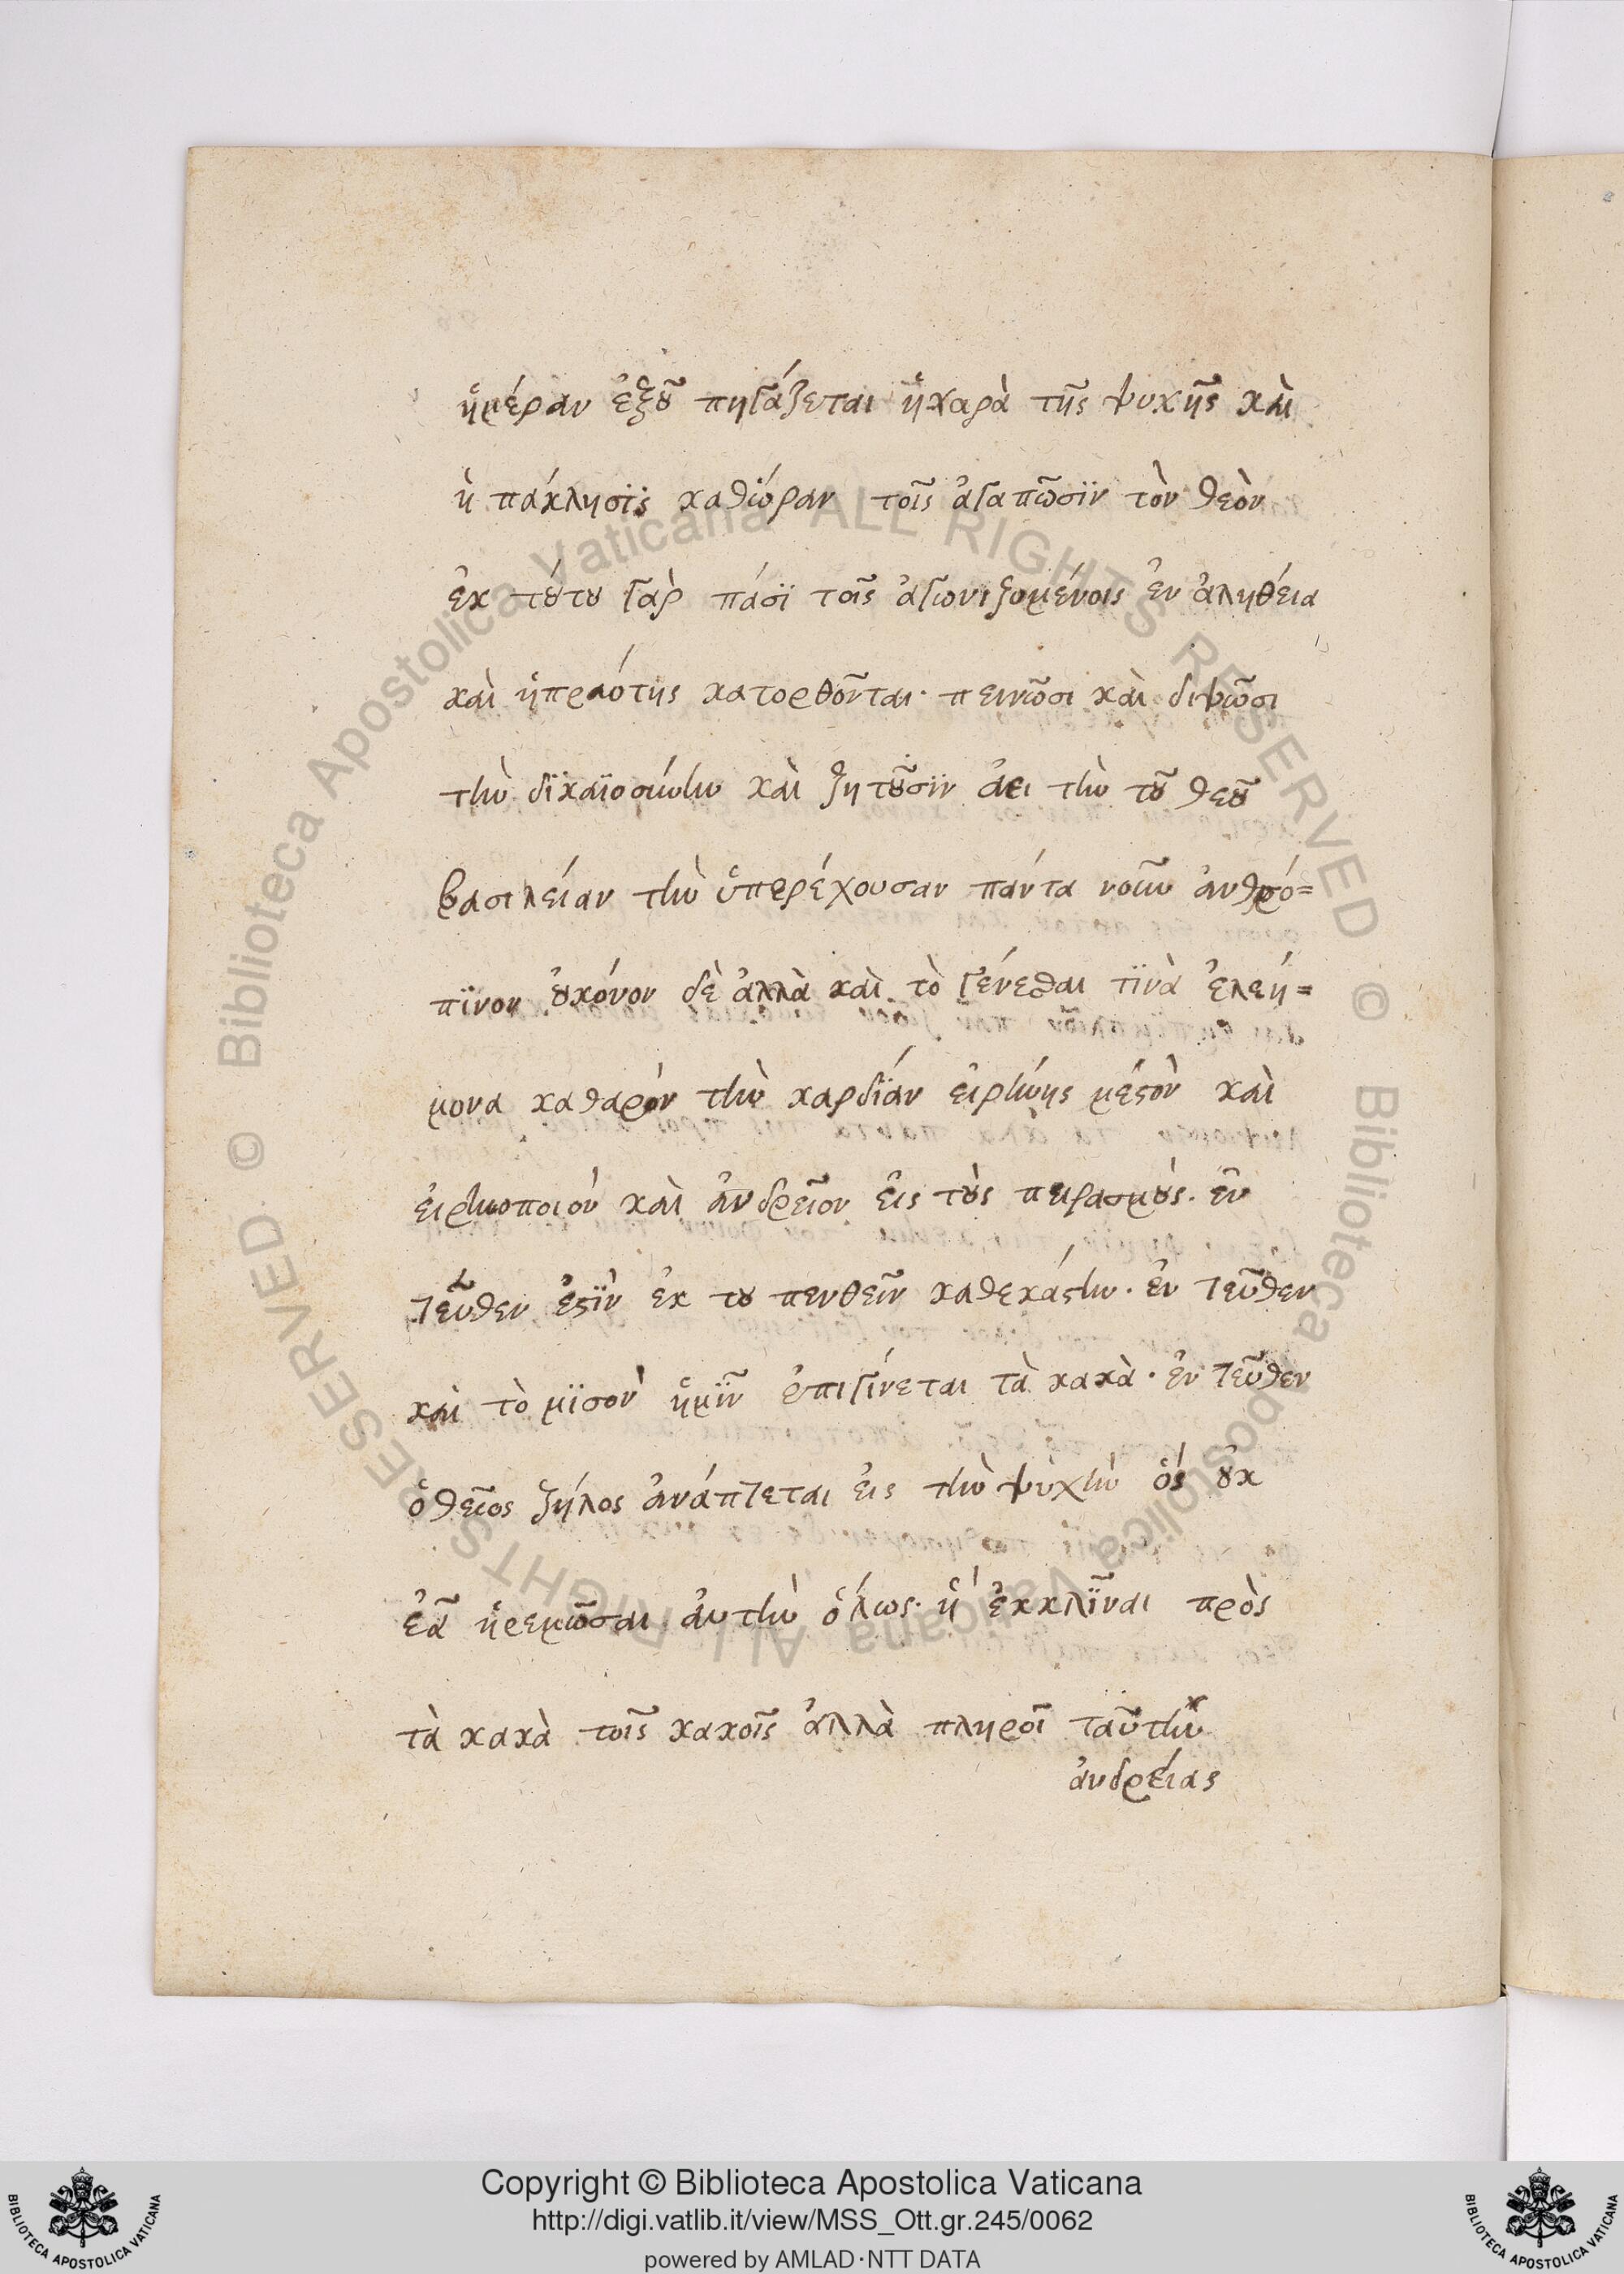 ἡμέραν ἐξοῦ πηγάζεται ἡ χαρὰ τῆς ψυχῆς καὶ
ἡ πάκλησϊς καθώραν τοῖς ἀγαπῶσϊν τὸν θεὸν
ἐκ τούτου γαρ πάσϊ τοῖς ἀγωνιζομένοις ἐν ἀληθέια
καὶ ἡ πραότης κατορθοῦνται· πεινῶσι καὶ διψῶσι
τὴν δϊκαϊοσύνην καὶ ζητοῦσϊν ἀει τὴν τοῦ θεοῦ
βασιλείαν τὴν ὑπερέχουσαν πάντα νοῦν ἀνθρό=
πϊνον οὐκόνον δὲ ἀλλὰ καὶ τὸ γένεσθαι τϊνὰ ἐλεή=
μονα καθαρὸν τὴν καρδϊάν εἰρήνης μέστὸν καὶ
ἐιρηνοποιὸν καὶ ἀνδρεῖον εἰς τοὺς πειρασμοὺς. ἐν
τεῦθεν ἐστϊν ἐκ του πενθεῖν καθεκάστην. ἐν τεῦθεν
καὶ τὸ μϊσον ἡμῖν ἐπιγίνεται τὰ κακὰ· ἐν τεῦθεν
ὁ θεῖος ζήλος ἀνάπτεται ἐις τὴν ψυχὴν ὁς οὐκ
ἐᾶ ἠρεμῶσαι ἀυτὴν ὅλως· ἢ ἐκκλῖναι πρὸς
τὰ κακὰ τοῖς κακοῖς ἀλλὰ πληροῖ ταῦτην
ἀνδρείας
Copyright © Biblioteca Apostolica Vaticana
http://digi.vatlib.it/view/MSS_Ott.gr.245/0062
powered by AMLAD·NTT DATA
BIBLIOTECA APOSTOLICA VATICANA
BIBLIOTECA APOSTOLICA VATICANA
© Biblioteca Apostolica Vaticana ALL RIGHTS RESERVED
© Biblioteca Apostolica Vaticana ALL RIGHTS RESERVED